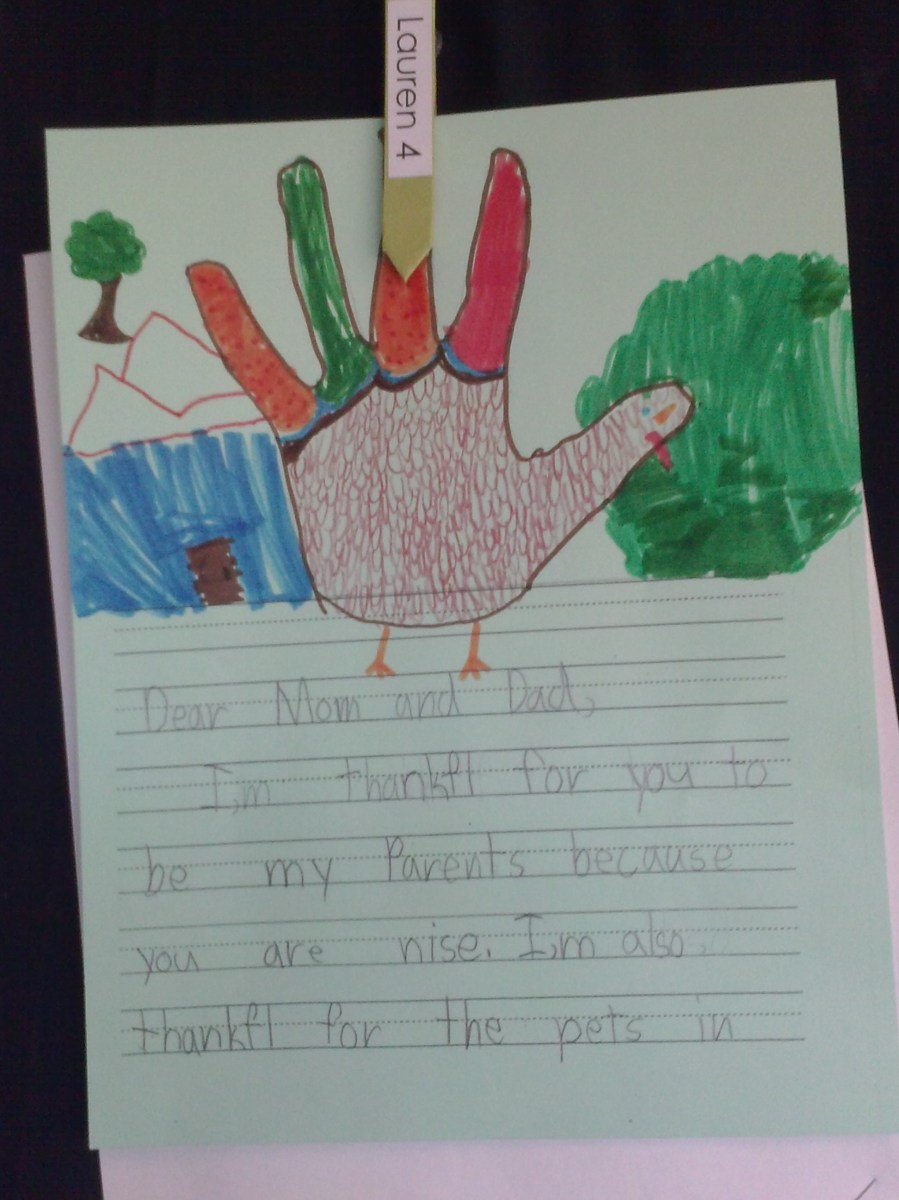 Lauren 4
Dear Mom and Dad,
I,m thankfl for you to
be my Parents because
you are nise. I,m also
thankfl for the pets in